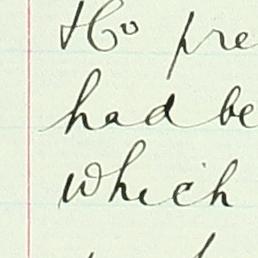 Ho pre
had be
which